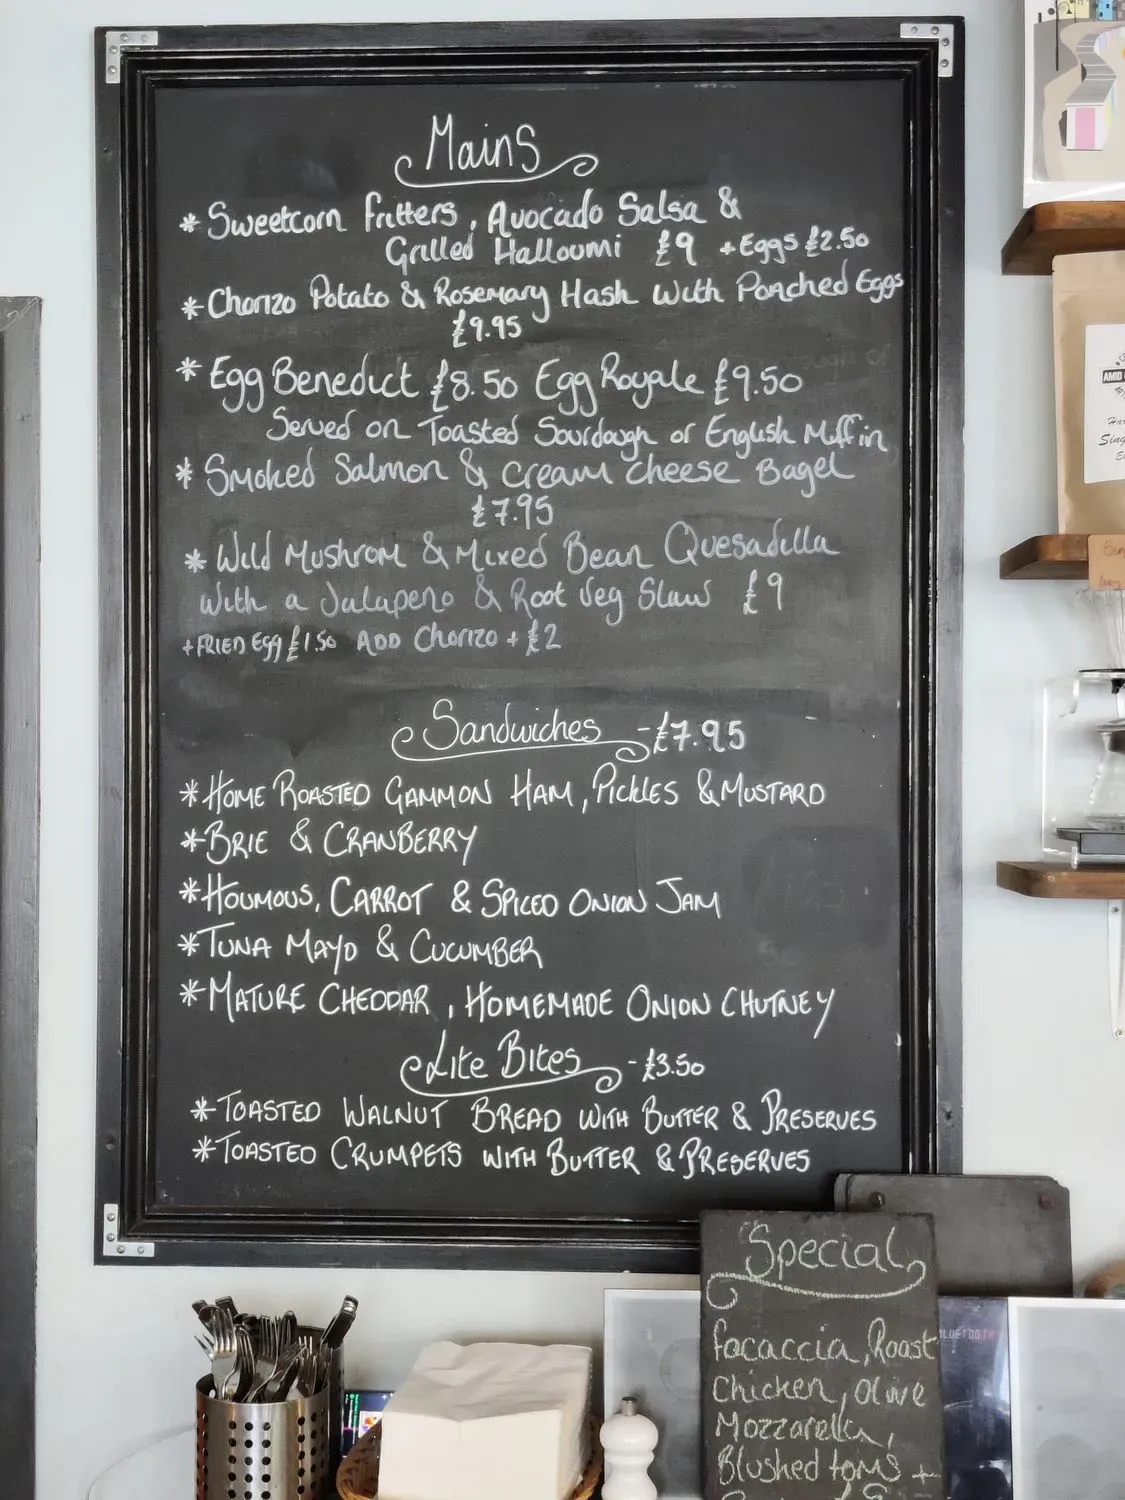 Mains
* Sweetcorn Fritters, Avocado Salsa &
Grilled Halloumi £9 + Eggs £2.50
* Chorizo Potato & Rosemary Hash With Poached Eggs
£9.95
* Egg Benedict £8.50 Egg Royale £9.50
Served on Toasted Sourdough or English Muffin
* Smoked Salmon & Cream cheese Bagel
£7.95
* Wild Mushrom & Mixed Bean Quesadilla
With a Jalapeno & Root Veg Slaw £9
+ FRIED Egg £1.50 ADD Chorizo + £2
Sandwiches - £7.95
* HOME ROASTED GAMMON HAM, PICKLES & MUSTARD
* BRIE & CRANBERRY
* HOUMOUS, CARROT & SPICED ONION JAM
* TUNA MAYO & CUCUMBER
* MATURE CHEDDAR, HOMEMADE ONION CHUTNEY
Lite Bites - £3.50
* TOASTED WALNUT BREAD WITH BUTTER & PRESERVES
* TOASTED CRUMPETS WITH BUTTER & PRESERVES
Special
focaccia, Roast
Chicken, Olive
Mozzarella,
Blushed toms +
AMID